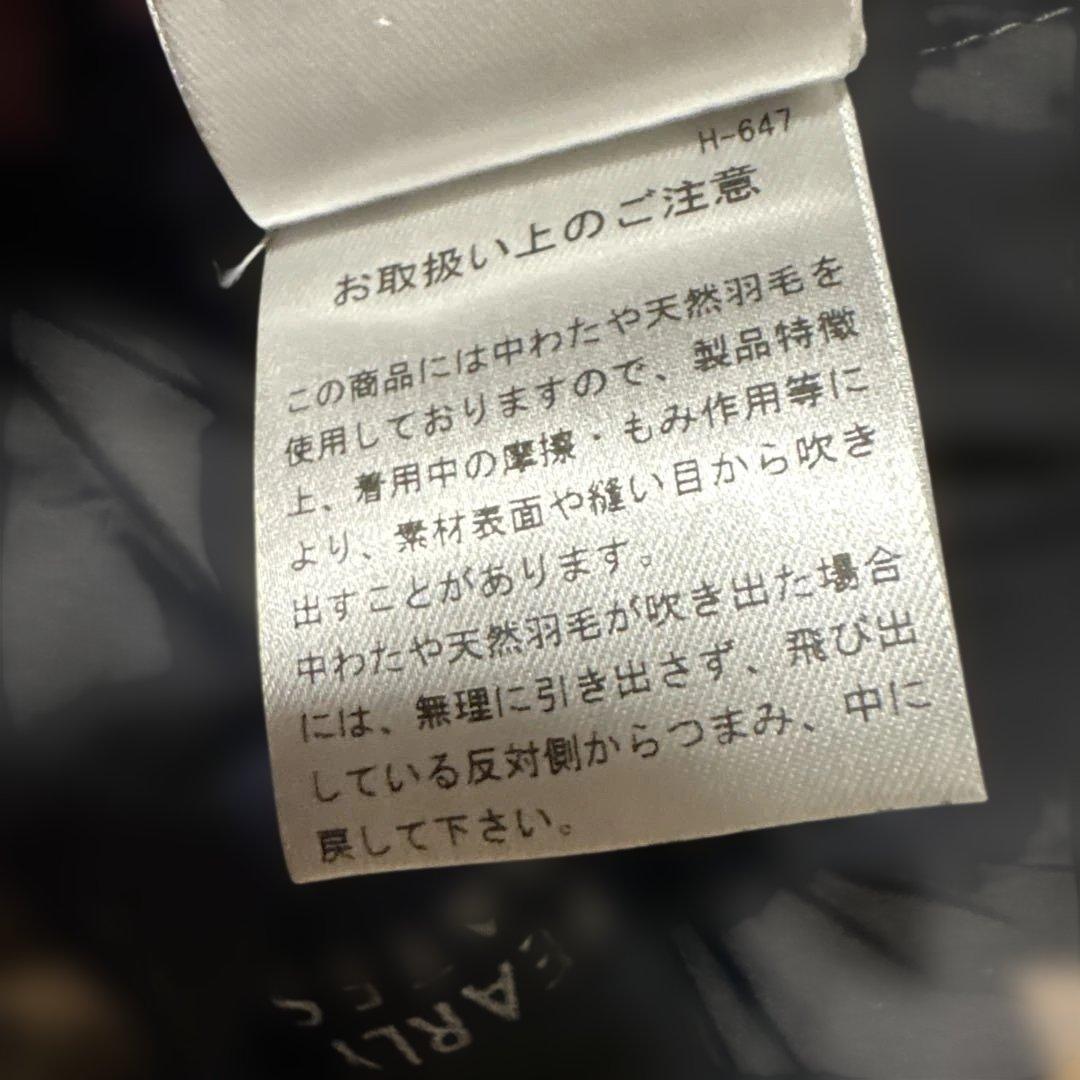 H-647
お取扱い上のご注意
この商品には中わたや天然羽毛を
使用しておりますので、製品特徴
上、着用中の摩擦・もみ作用等に
より、素材表面や縫い目から吹き
出すことがあります。
中わたや天然羽毛が吹き出た場合
には、無理に引き出さず、飛び出
している反対側からつまみ、中に
戻して下さい。
EARLY